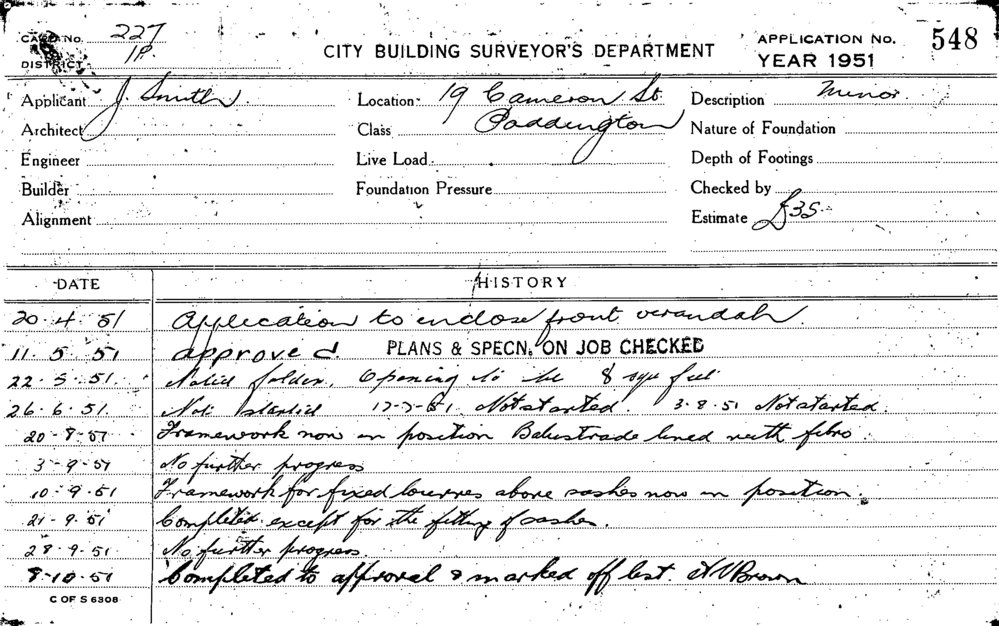 CARD No. 227
DISTRICT 1P.
CITY BUILDING SURVEYOR'S DEPARTMENT
APPLICATION No. 548
YEAR 1951
Applicant J. Smith. Location 19 Cameron St. Description Minor.
Architect Class Paddington Nature of Foundation
Engineer Live Load Depth of Footings
Builder Foundation Pressure Checked by
Alignment Estimate £35-
DATE HISTORY
20.4.51 Application to enclose front verandah.
11.5.51 approved. PLANS & SPECN. ON JOB CHECKED
22.5.51. Opening to be 8 feet
26.6.51. Not started 17-7-51. Not started. 3.8.51 Not started.
20-8-51 Framework now in position Balustrade lined with fibro.
3-9-51 No further progress
10-9-51 Framework for fixed louvres above sashes now in position.
21-9.51 Completed except for the fitting of sashes.
28.9.51. No further progress.
8-10-51 Completed to approval & marked off list. Brown
C OF S 6308